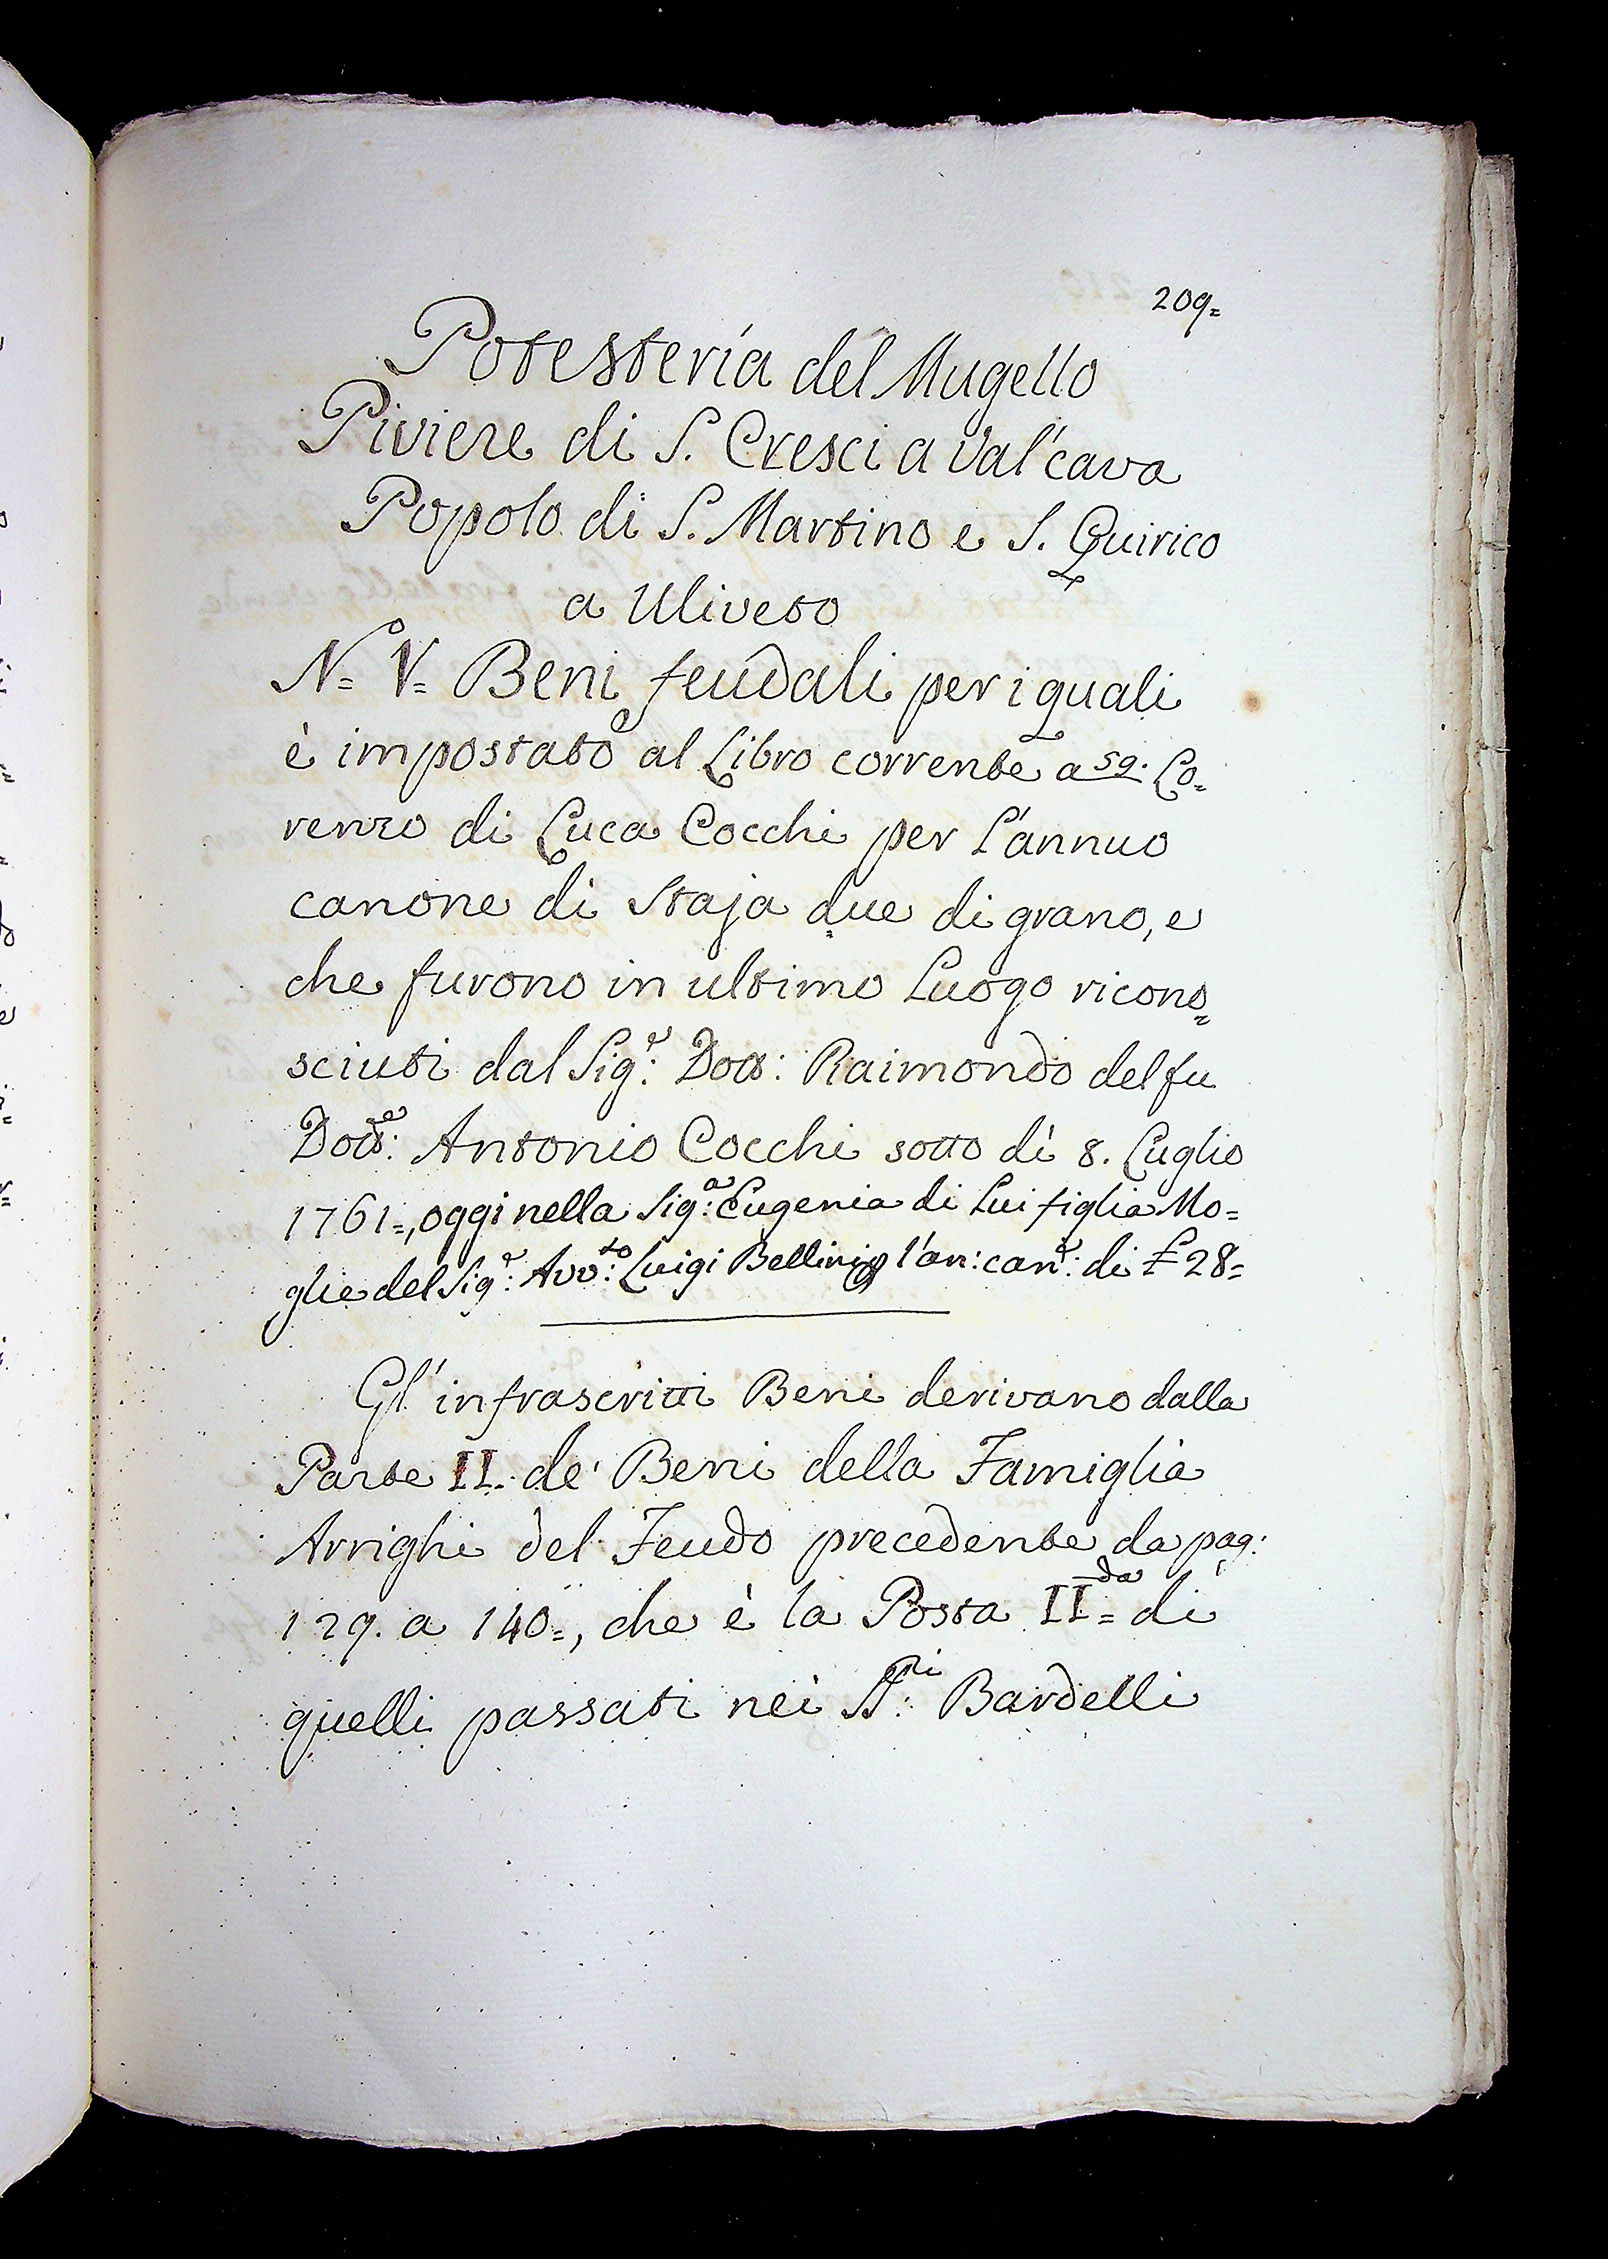 209=
Potesteria del Mugello
Piviere di S. Cresci a Val'cava
Popolo di S. Martino e S. Quirico
a Uliveto
N.o V= Beni feudali per i quali
è impostato al Libro corrente a 59. Lo=
renzo di Luca Cocchi per l'annuo
canone di Staja due di grano, e
che furono in ultimo Luogo ricono=
sciuti dal Sig.e: Dott: Raimondo del fu
Dott.e: Antonio Cocchi sotto dì 8. Luglio
1761=, oggi nella Sig.a: Eugenia di Lui figlia Mo=
glie del Sig.e: Avv.to: Luigi Bellini p l'an: can.e: di £ 28=
Gl'infrascritti Beni derivano dalla
Parte II. de' Beni della Famiglia
Arrighi del Feudo precedente da pag:
129. a 140=, che è la Posta II.da= di
quelli passati nei SS.ri: Bardelli